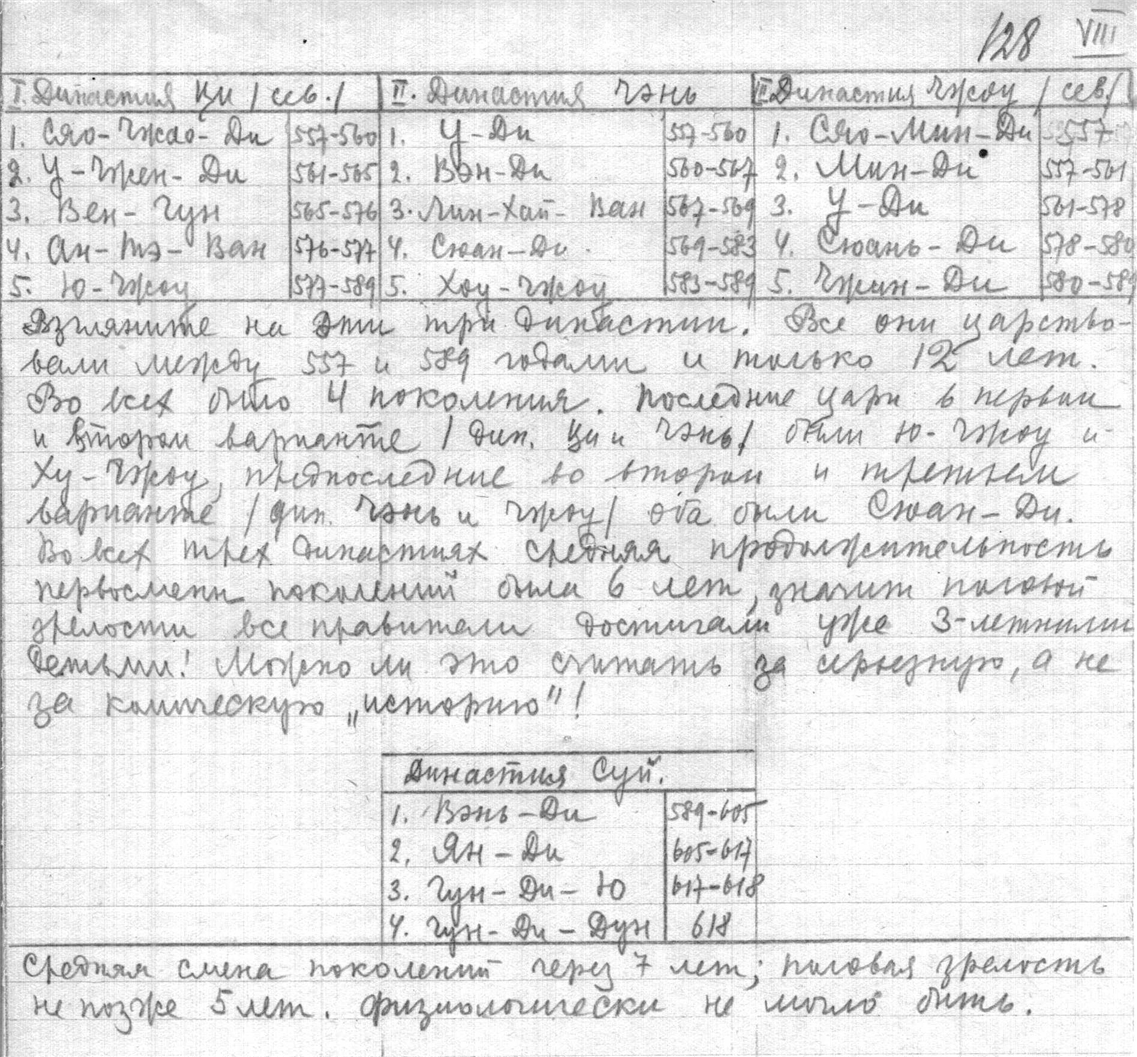 128 VIII
I. Династия Ци /сев./ II. Династия Чэнь III. Династия Чжоу /сев/
1. Сяо-Чжао-Ди 557-560 1. У-Ди 557-560 1. Сяо-Мин-Ди 557
2. У-Чжен-Ди 561-565 2. Вэн-Ди 560-567 2. Мин-Ди 557-561
3. Вен-Гун 565-576 3. Лин-Хай-Ван 567-569 3. У-Ди 561-578
4. Ан-тэ-Ван 576-577 4. Сюан-Ди 569-583 4. Сюань-Ди 578-580
5. Ю-Чжоу 577-589 5. Хоу-Чжоу 583-589 5. Чжин-Ди 580-589
Взгляните на эти три династии. Все они царство-
вали между 557 и 589 годами и только 12 лет.
Во всех было 4 поколения. Последние цари в первом
и втором варианте /дин. Ци и Чэнь/ были Ю-Чжоу и
Ху-Чжоу, предпоследние во втором и третьем
варианте /дин. Чэнь и Чжоу/ оба были Сюан-Ди.
Во всех трех династиях средняя продолжительность
первосмены поколений была 6 лет, значит половой
зрелости все правители достигали уже 3-летними
детьми! Можно ли это считать за серьезную, а не
за комическую „историю"!
Династия Суй.
1. Вэнь-Ди 589-605
2. Ян-Ди 605-617
3. Гун-Ди-Ю 617-618
4. Гун-Ди-Дун 618
Средняя смена поколений через 7 лет; половая зрелость
не позже 5 лет. Физиологически не могло быть.